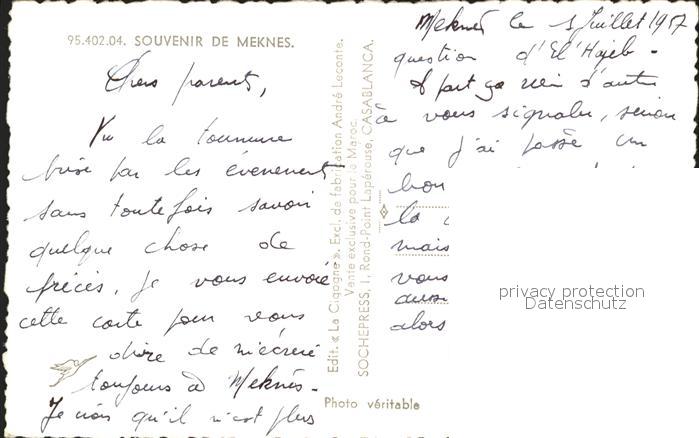 95.402.04. SOUVENIR DE MEKNES.
Chers parents,
Vu la tournure
prise par les évènements
sans toutefois savoir
quelque chose de
précis, je vous envoie
cette carte pour vous
dire de m'écrire
toujours à Meknès.
Je crois qu'il n'est plus
Edit. « La Cigogne ». Excl. de fabrication André Leconte.
Vente exclusive pour le Maroc.
SOCHEPRESS, 1, Rond-Point Lapérouse, CASABLANCA.
Photo véritable
Meknès le Juillet 1957
question d'El'Hajeb.
A part ça rien d'autre
à vous signaler, sinon
que j'ai passé un
bon
la
mais
vous
aussi
alors
privacy protection
Datenschutz